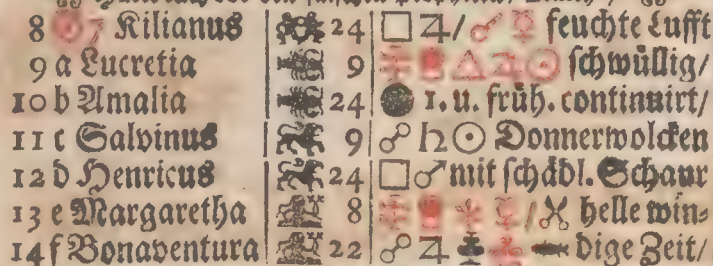 8 Kilianus 24 □ ♃ / ☌ ☿ feuchte Lufft
9 a Lucretia 9 △ ♃ ☉ schwüllig/
10 b Amalia 24 ● 1. u. früh. continuirt/
11 c Salvinus 9 ☍ ♄ ☉ Donnerwolcken
12 d Henricus 24 □ ♂ mit schädl. Schaur
13 e Margaretha 8 / helle win⸗
14 f Bonaventura 22 ☍ ♃ dige Zeit/